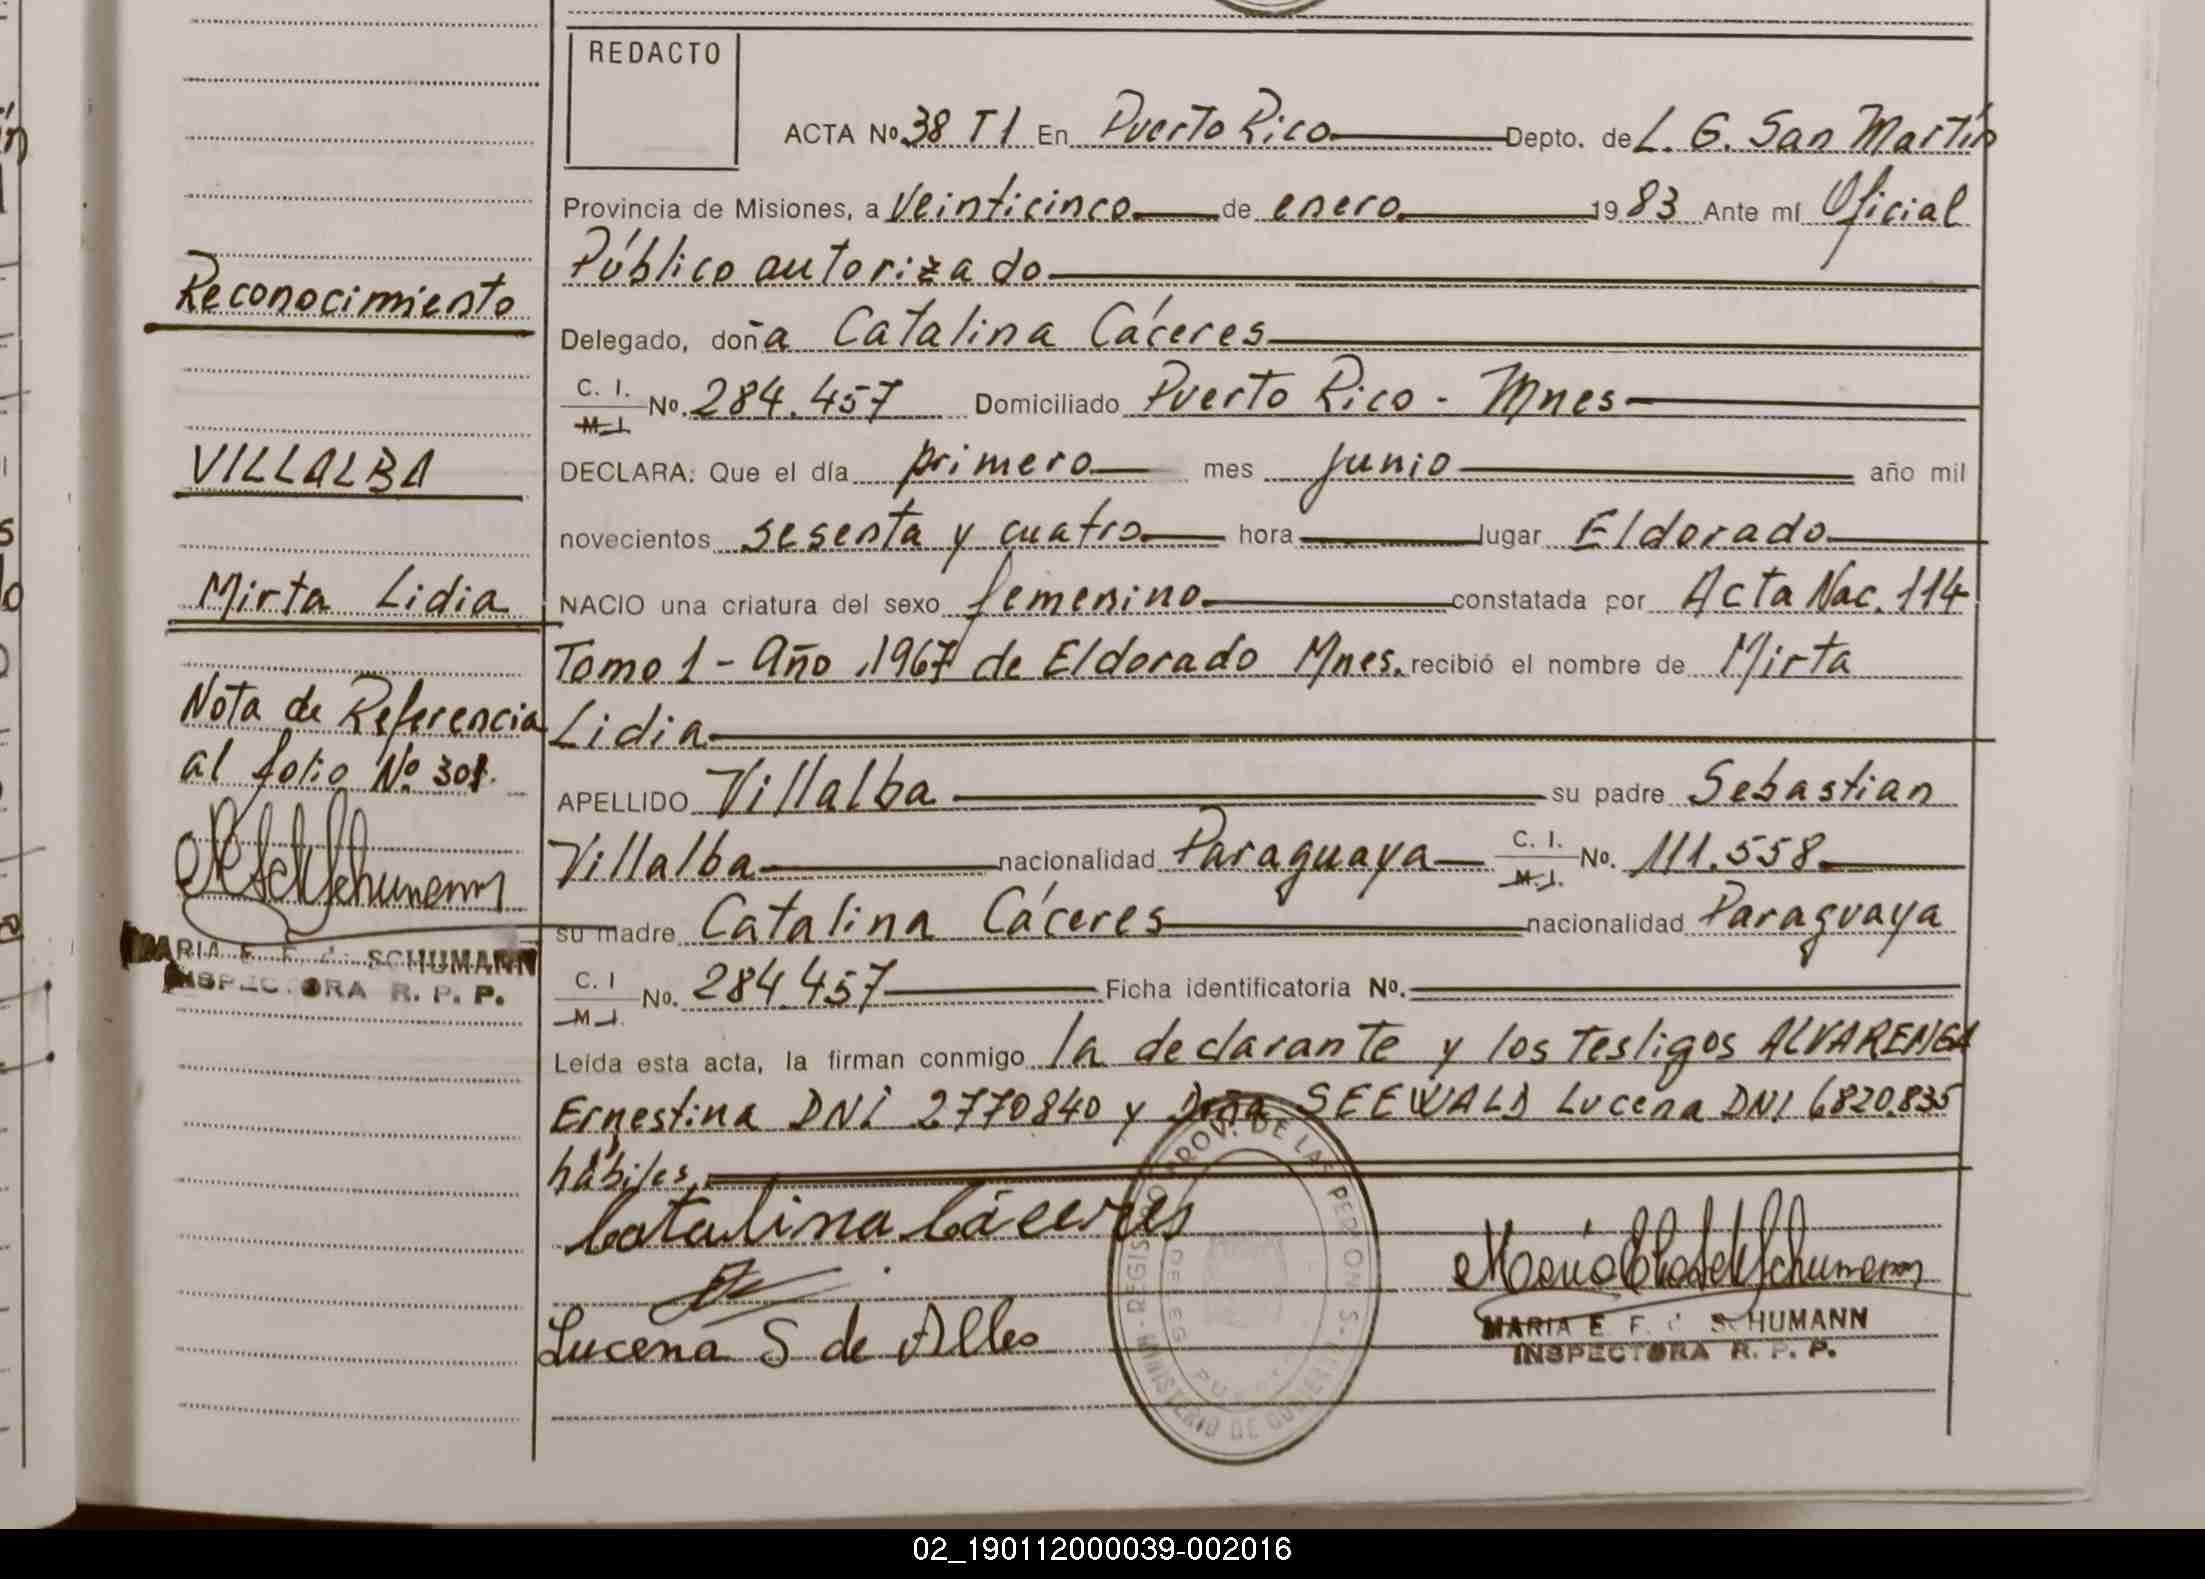 REDACTO
ACTA Nº 38 T1 En Puerto Rico Depto. de L. G. San Martín
Provincia de Misiones, a Veinticinco de enero 1983 Ante mí Oficial
Público autorizado
Delegado, doña Catalina Cáceres
C. I.
M. I.
No. 284.457 Domiciliado Puerto Rico - Mnes
DECLARA: Que el día primero mes junio año mil
novecientos sesenta y cuatro hora lugar Eldorado
NACIO una criatura del sexo femenino constatada por Acta Nac. 114
Tomo 1 - Año 1967 de Eldorado Mnes. recibió el nombre de Mirta
Lidia
APELLIDO Villalba su padre Sebastian
Villalba nacionalidad Paraguaya C. I. M. I. No. 111.558
su madre Catalina Cáceres nacionalidad Paraguaya
C. I M I. No. 284.457 Ficha identificatoria No.
Leída esta acta, la firman conmigo la declarante y los testigos ALVARENGA
Ernestina DNI 2770840 y Dña SEEWALD Lucena DNI 6820.835
hábiles.
Catalina Cáceres
Lucena S de Alles
MARIA E. F. SCHUMANN
INSPECTORA R. P. P.
Reconocimiento
VILLALBA
Mirta Lidia
Nota de Referencia
al folio Nº 301.
MARIA E. F. SCHUMANN
INSPECTORA R. P. P.
REGISTRO PROV. DE LAS PERSONAS
MINISTERIO DE GOBIERNO
02_190112000039-002016